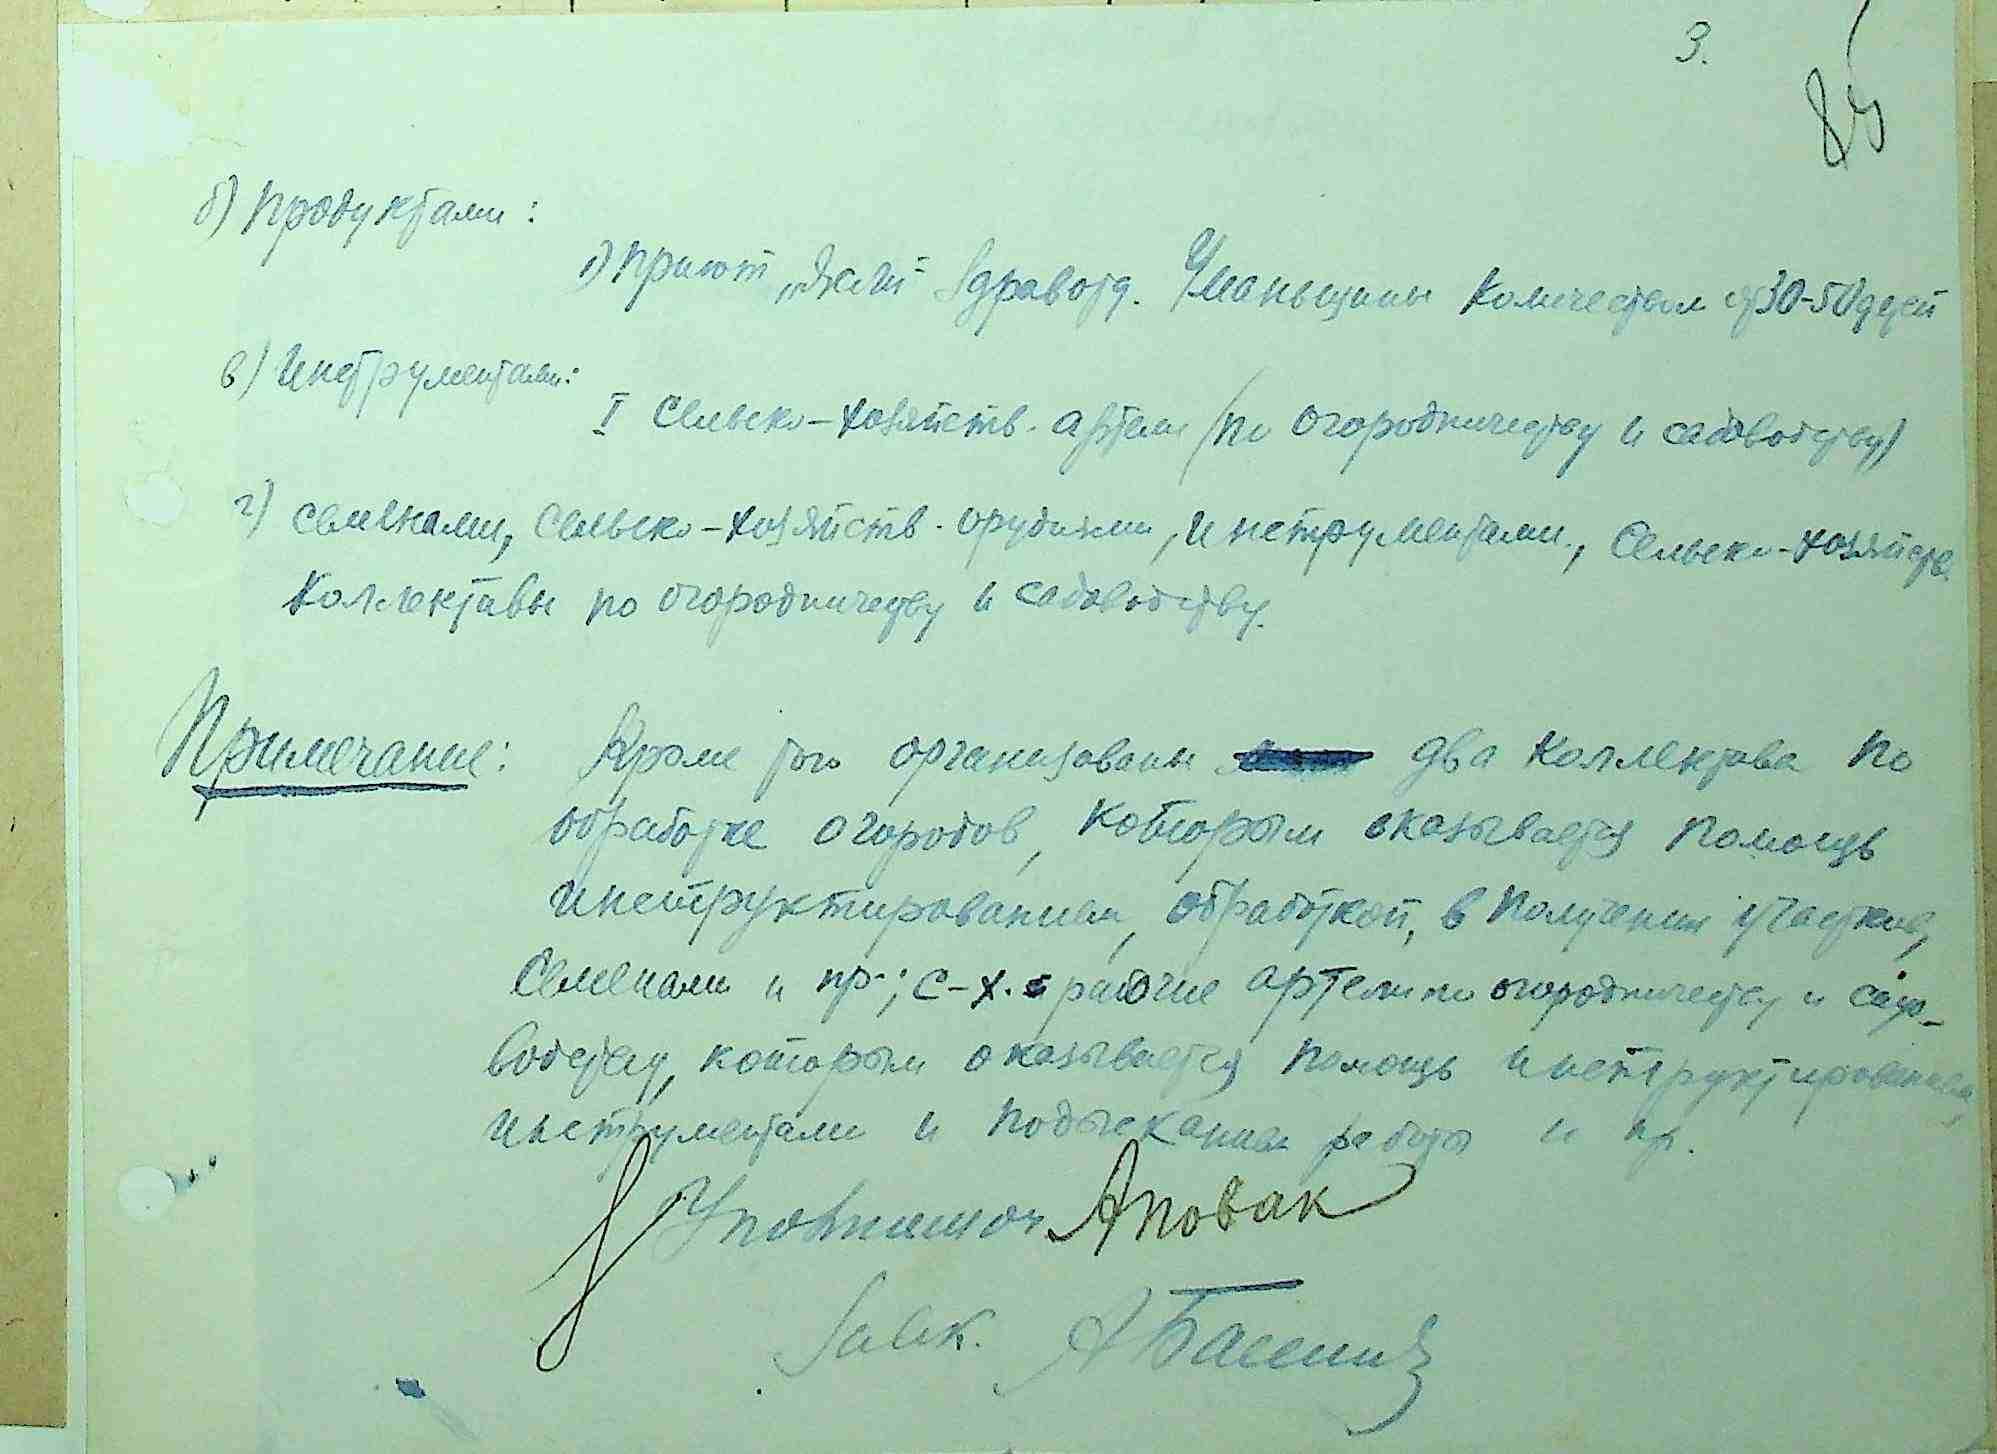 3.
85
б) Продуктами:
1) Приют „Ясли" Здравотд. Уманьщины количеством от 30-50 детей
в) Инструментами:
I Сельско-хозяйств. артели (по огородничеству и садоводству)
г) Семенами, сельско-хозяйств. орудиями, инструментами, сельско-хозяйств.
коллективы по огородничеству и садоводству.
Примечание: Кроме того организованы два коллектива по
обработке огородов, которым оказывается помощь
инструктированием, обработкой, в получении участков,
семенами и пр.; с-х. рабочие артели по огородничеству и садо-
водству, которым оказывается помощь инструктированием,
инструментами и подысканием работы и пр.
Уповнимоч АНовак
Завк. АБасс